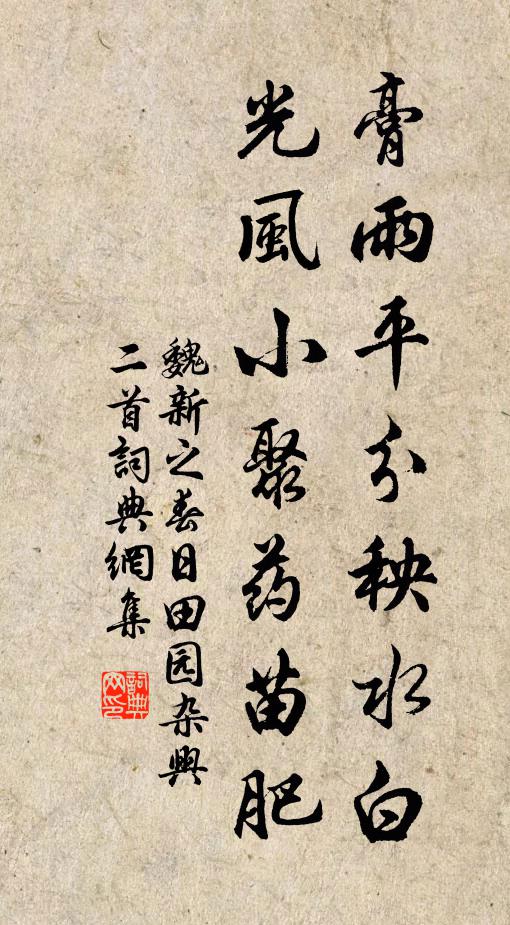 膏雨平分秧水白
光風小聚药苗肥
魏新之春日田园杂興
二首詞典網集
詞典
网印